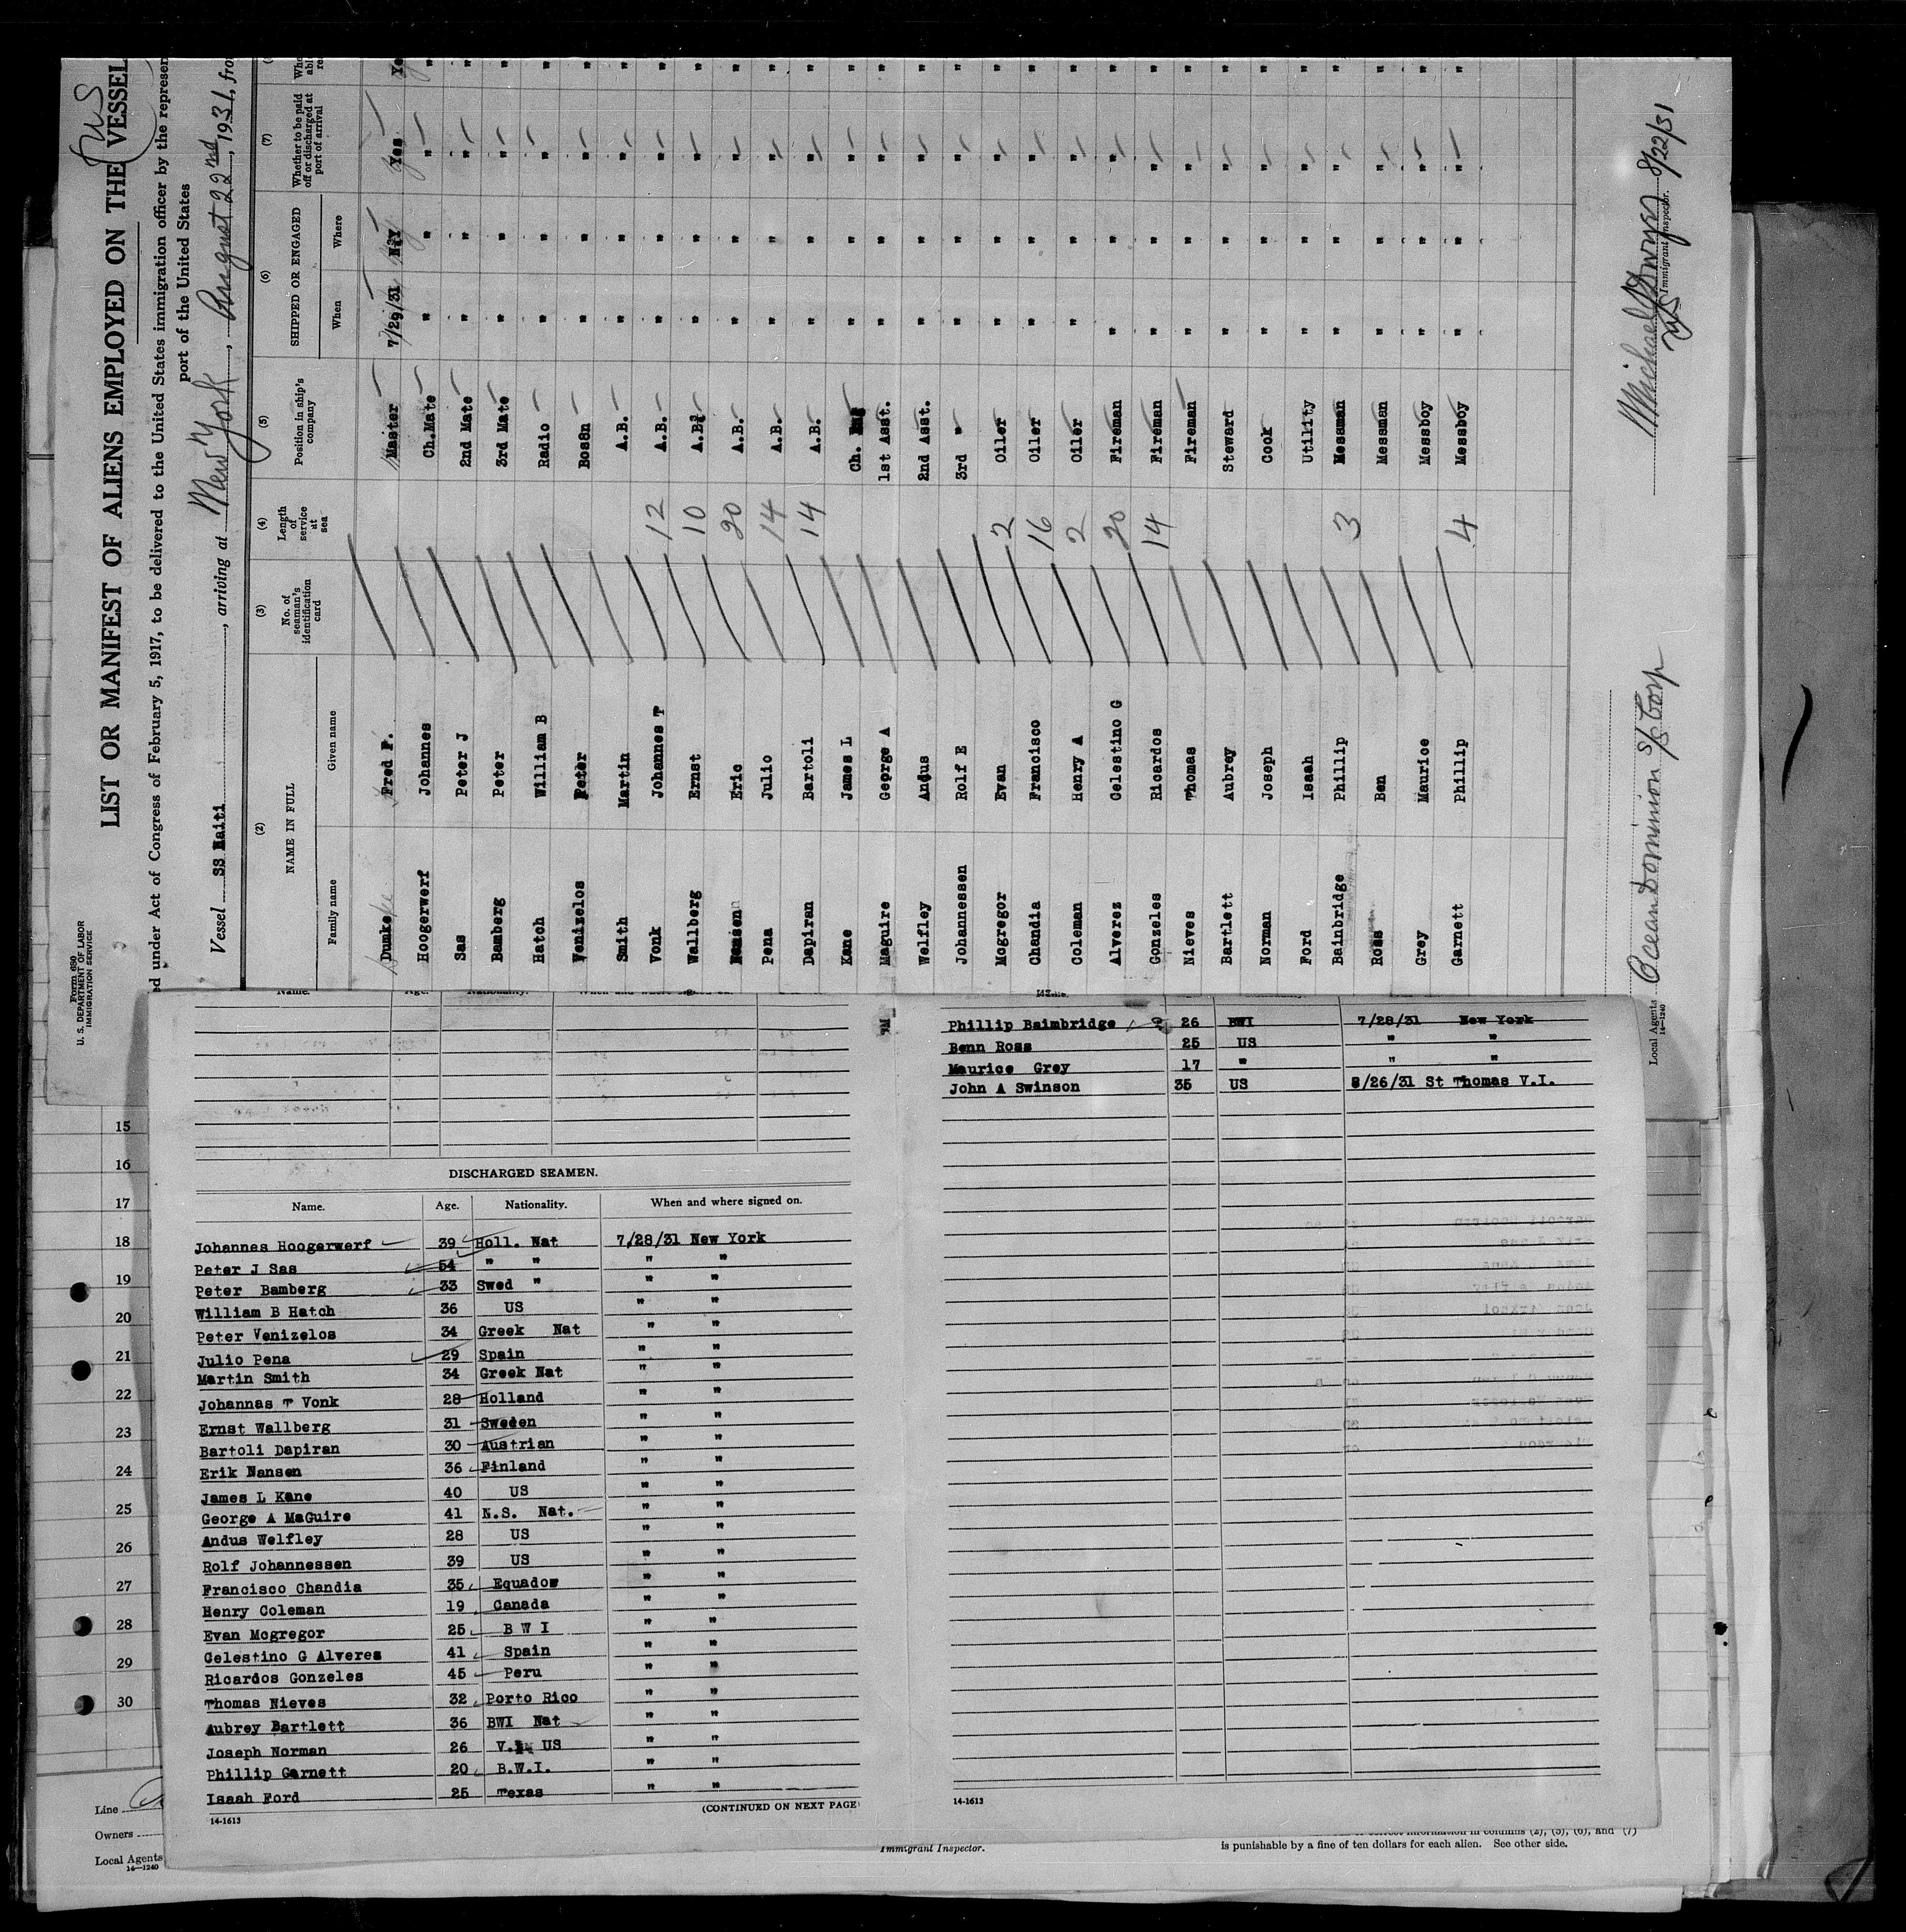 Form 680
U. S. DEPARTMENT OF LABOR
IMMIGRATION SERVICE
US
LIST OR MANIFEST OF ALIENS EMPLOYED ON THE VESSEL
ed under Act of Congress of February 5, 1917, to be delivered to the United States immigration officer by the represen
port of the United States
Vessel SS Haiti, arriving at New York, August 22nd, 1931, fro
(2) (3) (4) (5) (6) (7)
NAME IN FULL No. of seaman's identification card Length of service at sea Position in ship's company SHIPPED OR ENGAGED Whether to be paid off or discharged at port of arrival
Family name Given name When Where
Dumke Fred F. Master 7/29/31 NY Yes Ye
Hoogerwerf Johannes Ch.Mate " " " "
Sas Peter J 2nd Mate " " " "
Bamberg Peter 3rd Mate " " " "
Hatch William B Radio " " " "
Venizelos Peter Bos8n " " " "
Smith Martin A.B. " " " "
Vonk Johannes T 12 A.B. " " " "
Wallberg Ernst 10 A.B. " " " "
Nansen Eric 20 A.B. " " " "
Pena Julio 14 A.B. " " " "
Dapiran Bartoli 14 A.B. " " " "
Kane James L Ch. " " " "
Maguire George A 1st Asst. " " " "
Welfley Andus 2nd Asst. " " " "
Johannessen Rolf E 3rd " " " " "
Mcgregor Evan 2 Oiler " " " "
Chandia Francisco 16 Oiler " " " "
Coleman Henry A 2 Oiler " " " "
Alverez Celestino G 20 Fireman " " " "
Gonzeles Ricardos 14 Fireman " " " "
Nieves Thomas Fireman " " " "
Bartlett Aubrey Steward " " " "
Norman Joseph Cook " " " "
Ford Isaah Utility " " " "
Bainbridge Phillip 3 Messman " " " "
Ross Ben Messman " " " "
Grey Maurice Messboy " " " "
Garnett Phillip 4 Messboy " " " "
Local Agents Ocean Dominion S/S Corp
14—1240
8/22/31
Immigrant Inspector.
Name. Age. Nationality. When and where signed on.
DISCHARGED SEAMEN.
Name. Age. Nationality. When and where signed on.
Johannes Hoogerwerf 39 Holl. Nat 7/28/31 New York
Peter J Sas 54 " " " "
Peter Bamberg 33 Swed " " "
William B Hatch 36 US " "
Peter Venizelos 34 Greek Nat " "
Julio Pena 29 Spain " "
Martin Smith 34 Greek Nat " "
Johannas T Vonk 28 Holland " "
Ernst Wallberg 31 Sweden " "
Bartoli Dapiran 30 Austrian " "
Erik Nansen 36 Finland " "
James L Kane 40 US " "
George A MaGuire 41 N.S. Nat. " "
Andus Welfley 28 US " "
Rolf Johannessen 39 US " "
Francisco Chandia 35 Equador " "
Henry Coleman 19 Canada " "
Evan Mcgregor 25 B W I " "
Celestino G Alveres 41 Spain " "
Ricardos Gonzeles 45 Peru " "
Thomas Nieves 32 Porto Rico " "
Aubrey Bartlett 36 BWI Nat " "
Joseph Norman 26 V.I. US " "
Phillip Garnett 20 B.W.I. " "
Isaah Ford 25 Texas " "
14-1613
(CONTINUED ON NEXT PAGE
Phillip Baimbridge 26 BWI 7/28/31 New York
Benn Ross 25 US " "
Maurice Grey 17 " " "
John A Swinson 35 US 8/26/31 St Thomas V.I.
14-1613
15
16
17
18
19
20
21
22
23
24
25
26
27
28
29
30
Line
Owners
Local Agents
14—1240
Immigrant Inspector.
correct information in columns (2), (5), (6), and (7)
is punishable by a fine of ten dollars for each alien. See other side.